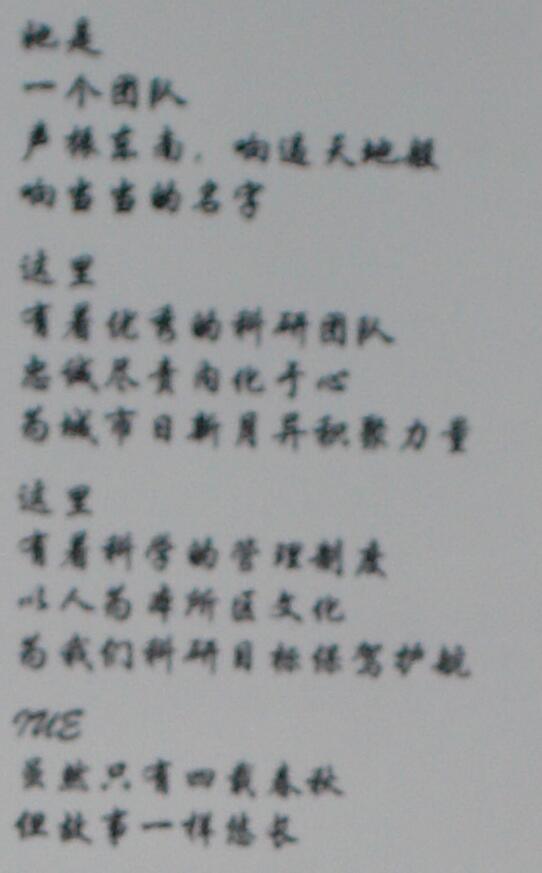 她是
一个团队
声振东南，响遏天地般
响当当的名字
这里
有着优秀的科研团队
忠诚尽责内化于心
为城市日新月异积聚力量
这里
有着科学的管理制度
以人为本所区文化
为我们科研目标保驾护航
IUE
虽然只有四载春秋
但故事一样悠长